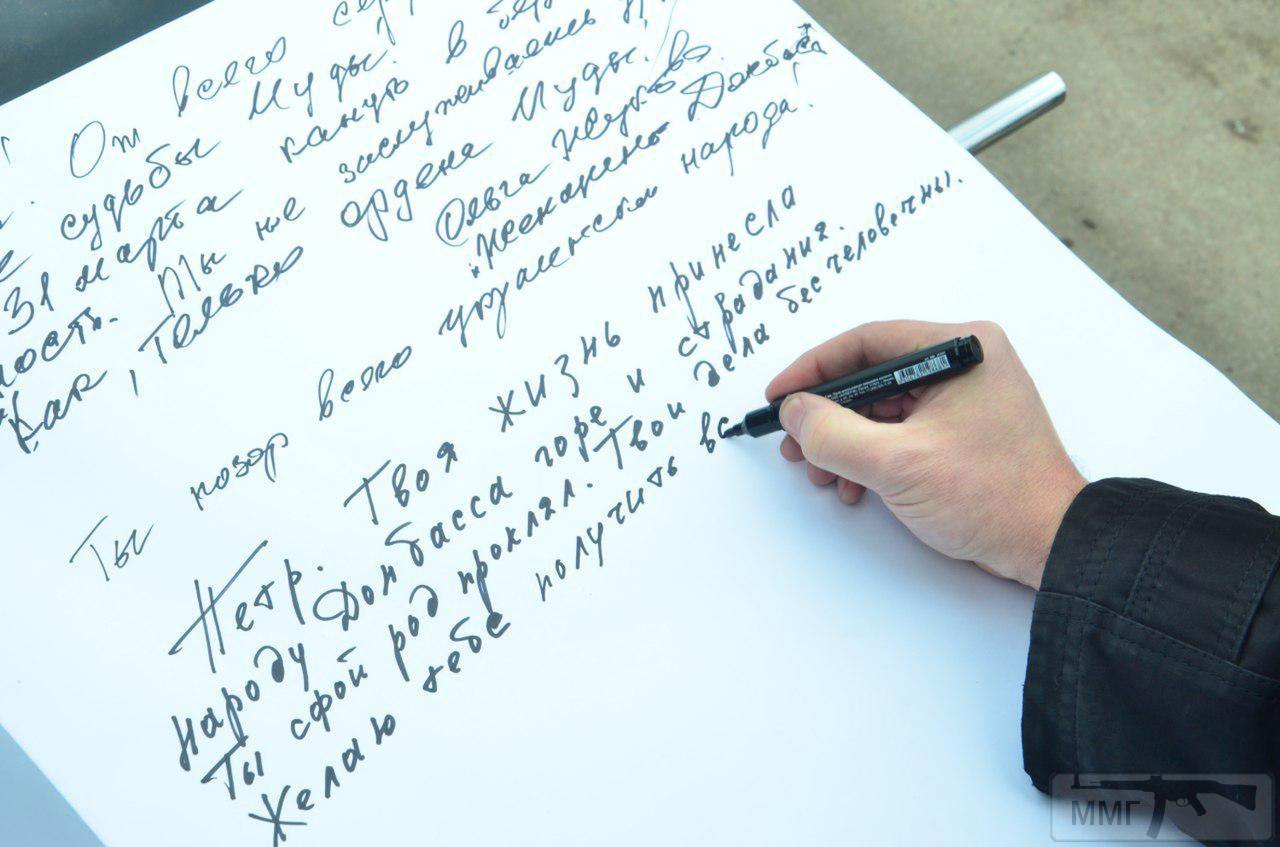 От всего
судьбы Муды!
31 марта кануть в
ность. Ты не заслуживаешь
Как, только ордена Муды!
Ольга Жукова
"Жемчужены Донбасса"
Ты позор всего украинского народа!
Петр. Твоя жизнь принесла
народу Донбасса горе и страдания.
Ты сфой род проклял. Твои дела бесчеловечны.
Желаю тебе получить вс
ММГ